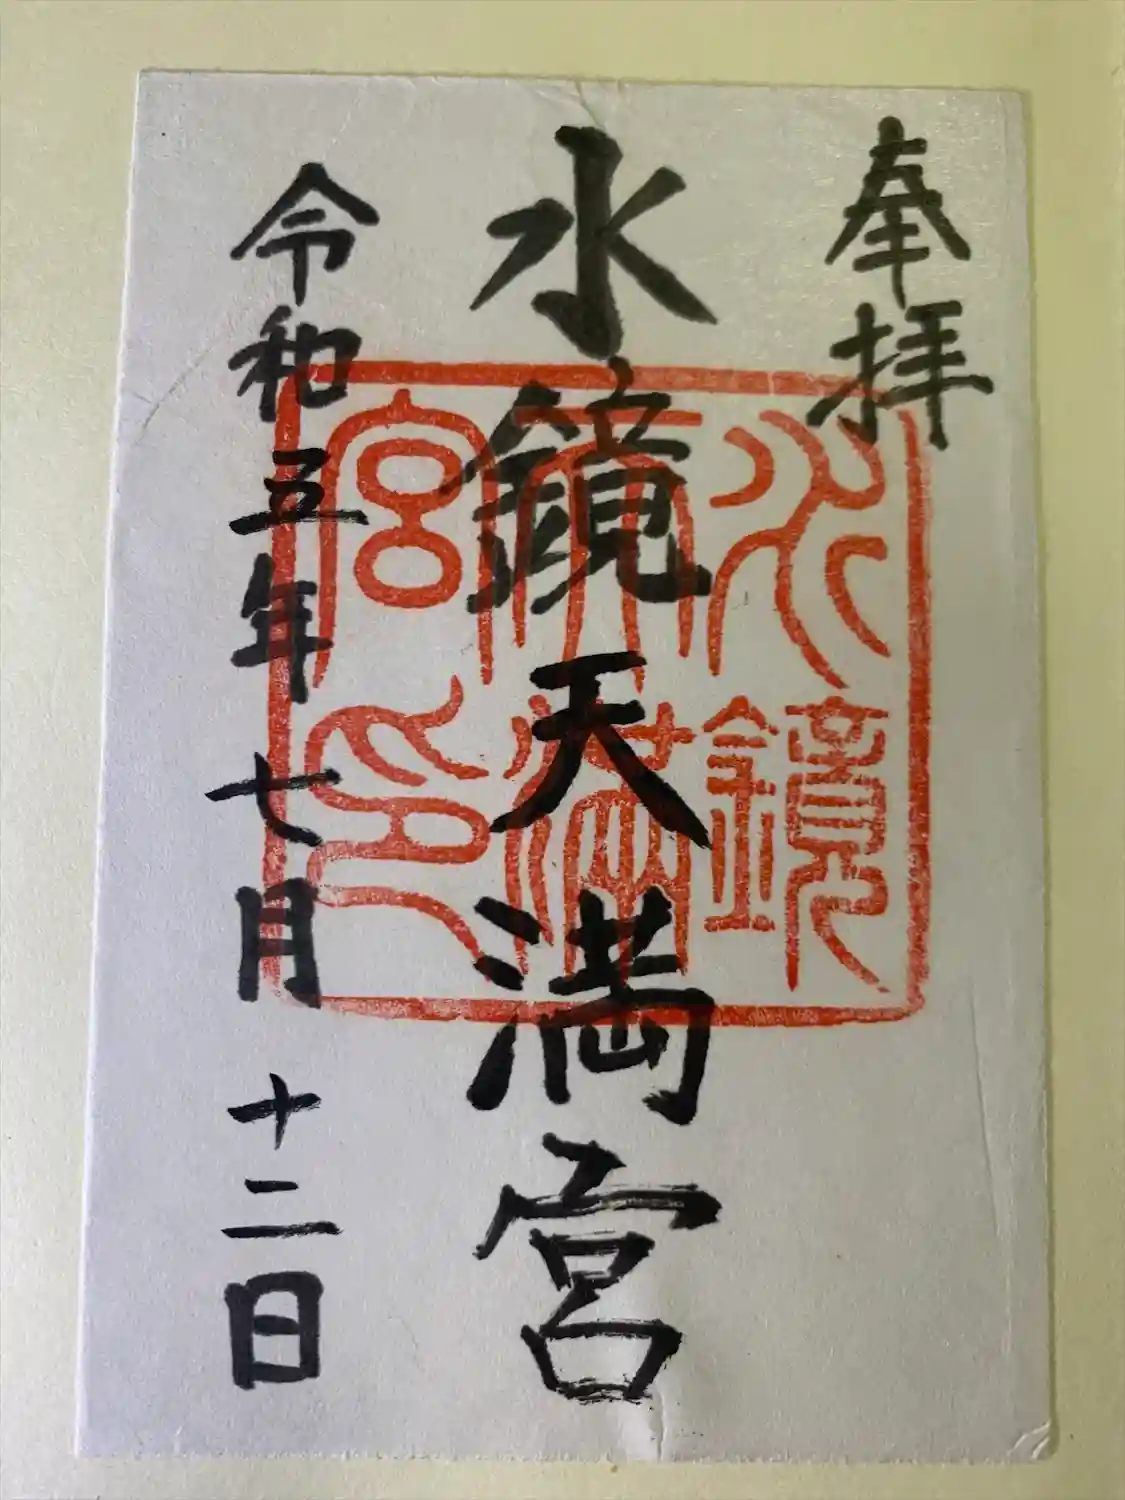 奉拝
水鏡天満宮
令和五年七月十二日
水鏡
天満
宮印